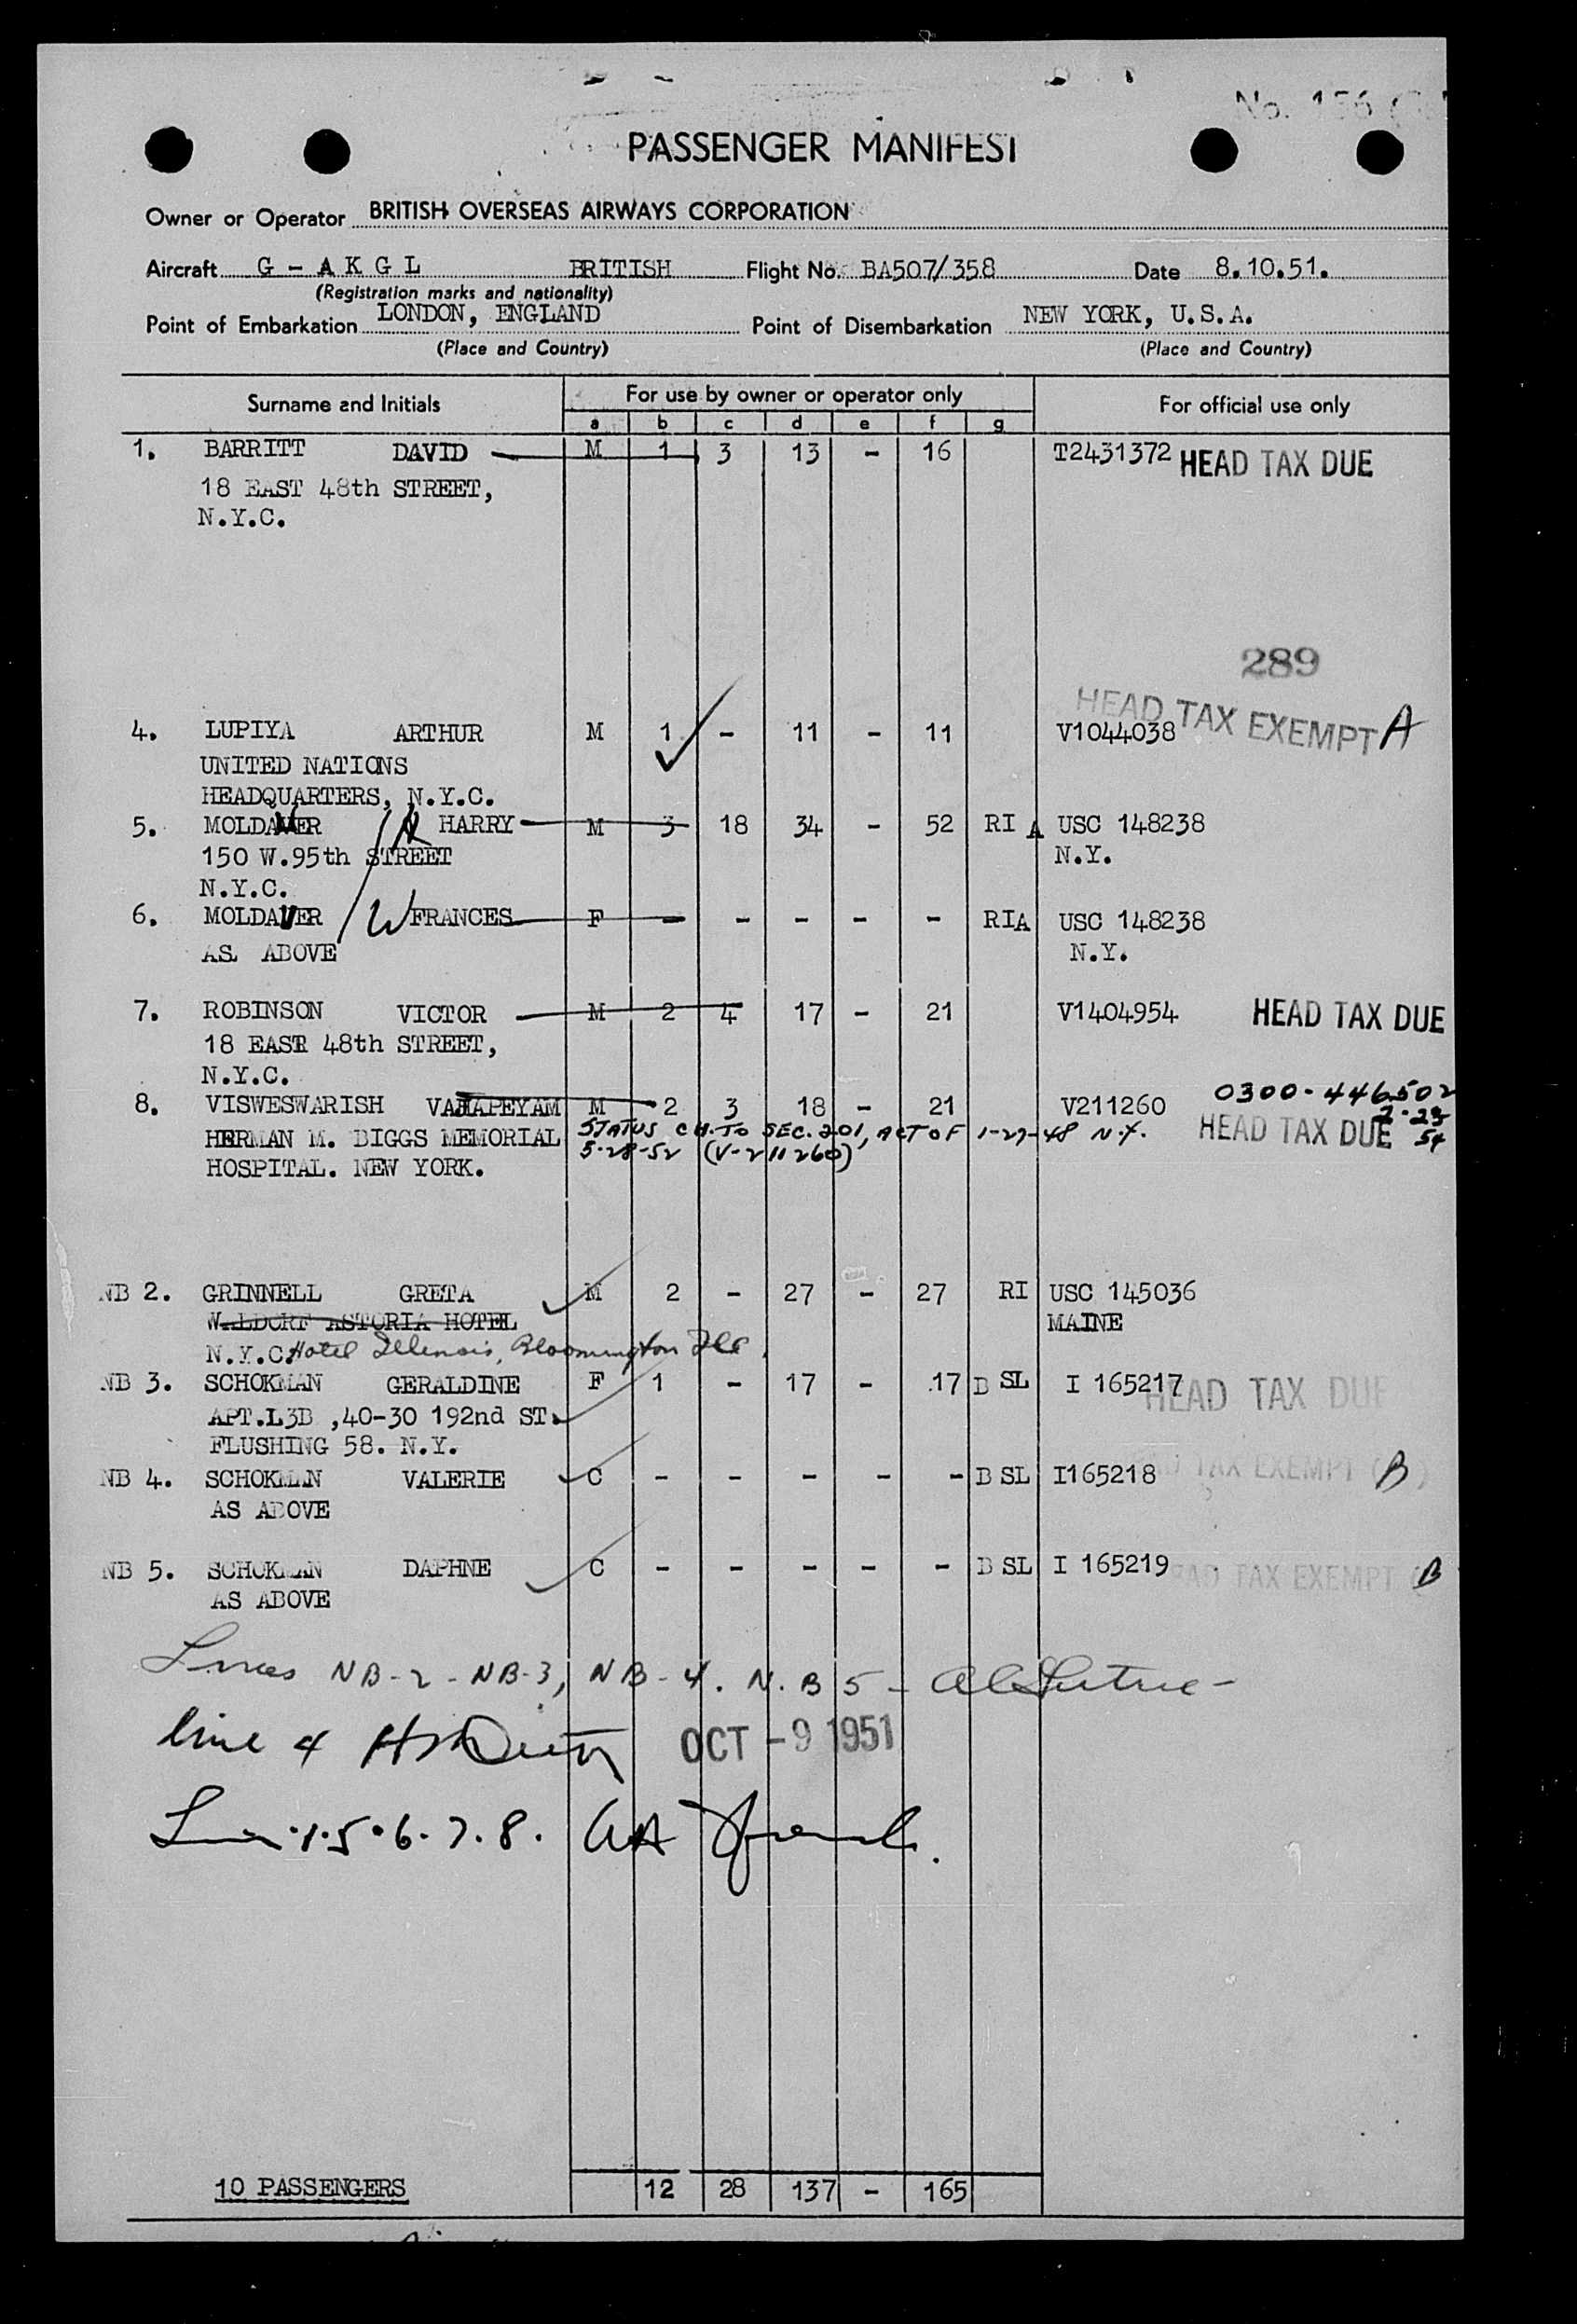 No. 156
PASSENGER MANIFEST
Owner or Operator BRITISH OVERSEAS AIRWAYS CORPORATION
Aircraft G - A K G L BRITISH Flight No. BA507/358 Date 8.10.51.
(Registration marks and nationality)
Point of Embarkation LONDON, ENGLAND Point of Disembarkation NEW YORK, U.S.A.
(Place and Country) (Place and Country)
Surname and Initials For use by owner or operator only For official use only
a b c d e f g
1. BARRITT DAVID M 1 3 13 - 16 T2431372 HEAD TAX DUE
18 EAST 48th STREET,
N.Y.C.
289
HEAD TAX EXEMPT A
4. LUPIYA ARTHUR M 1 - 11 - 11 V1044038
UNITED NATIONS
HEADQUARTERS, N.Y.C.
5. MOLDAVER HARRY M 3 18 34 - 52 RI A USC 148238
150 W.95th STREET N.Y.
N.Y.C.
6. MOLDAVER W FRANCES F - - - - - RIA USC 148238
AS ABOVE N.Y.
7. ROBINSON VICTOR M 2 4 17 - 21 V1404954 HEAD TAX DUE
18 EAST 48th STREET,
N.Y.C.
0300-446502
8. VISWESWARISH VAJAPEYAM M 2 3 18 - 21 V211260 2-23
HERMAN M. BIGGS MEMORIAL STATUS CH. TO SEC. 201, ACT OF 1-27-48 N.Y. HEAD TAX DUE 54
HOSPITAL. NEW YORK. 5-28-52 (V-211260)
NB 2. GRINNELL GRETA M 2 - 27 - 27 RI USC 145036
WALDORF ASTORIA HOTEL MAINE
N.Y.C. Hotel Illinois, Bloomington Ill.
NB 3. SCHOKMAN GERALDINE F 1 - 17 - 17 B SL I 165217 HEAD TAX DUE
APT.L3B ,40-30 192nd ST.
FLUSHING 58. N.Y.
NB 4. SCHOKMAN VALERIE C - - - - - B SL I165218 HEAD TAX EXEMPT (B)
AS ABOVE
NB 5. SCHOKMAN DAPHNE C - - - - - B SL I 165219 HEAD TAX EXEMPT B
AS ABOVE
Lines NB-2-NB-3, NB-4. N.B 5 -
line 4 OCT -9 1951
1.5.6.7.8.
10 PASSENGERS 12 28 137 - 165